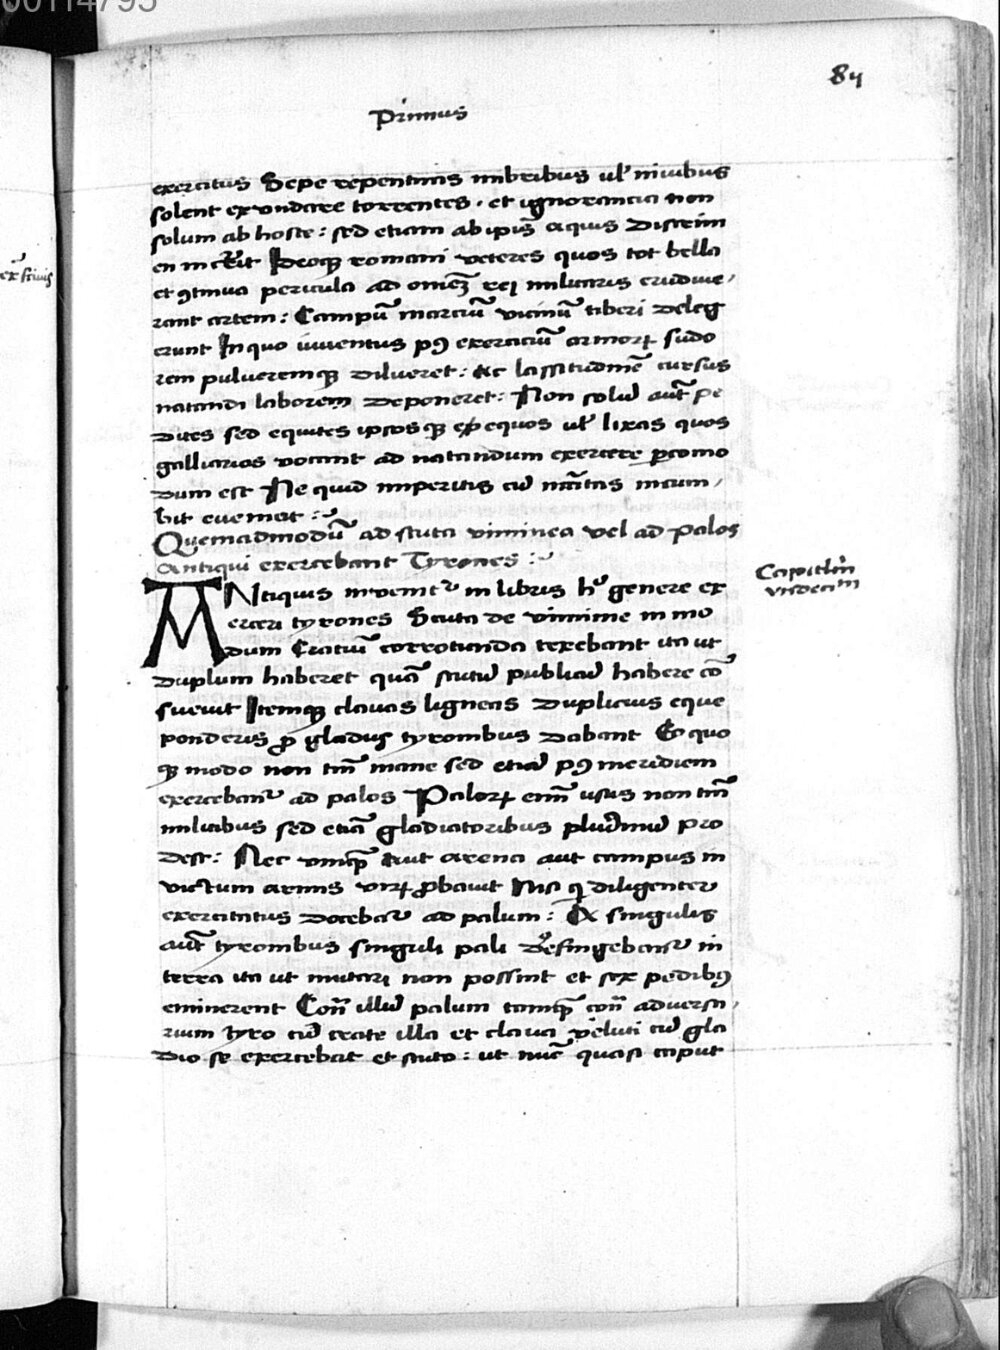 00114795
84
Primus
exercitus Sepe repentinis imbribus ul̄ nivibus
solent exundare torrentes. et ignorancia non
solum ab hoste: sed etiam ab ipīs aquis Discrim
en Ideoqꝫ romani veteres quos tot bella
et ꝯtinua pericula ad omēꝫ rei militaris erudiue/
rant artem: Campū marciū vicinū tiberi Deleg
erunt In quo iuventus pꝯ exerciciū armoꝝ sudo
rem pulveremqꝫ Dilueret: Ac lassitudinē cursus
natandi laborem Deponeret: Non solū aūt pe
Dites sed equites ipsosqꝫ equos ul̄ lixas quos
galliarios vocant ad natandum exercere ꝑcomo
Dum est Ne quid imperitis cū incum/
bit eveniat:
Quemadmodū ad scuta viminea vel ad palos
Antiqui exercebant Tyrones:
Capitlm̄
undecim
ANtiquis in libris genere ex
erceri tyrones Scuta de vimine in mo
dum Cratiū corrotunda texebant ita ut
Duplum haberet quā scutū publicū habere cō
suevit Itemqꝫ clavas ligneas Duplicius eque
ponderis ꝓ gladiis tyronibus Dabant Eo quo
qꝫ modo non tm̄ mane sed etiā pꝯ meridiem
exercebanť ad palos Paloꝝ enī usus non tm̄
militibus sed etiā gladiatoribus plurimū pro
Dest: Nec unqꝫ aut arena aut campus in
victum armis virꝝ ꝓbavit Nisi qi diligenter
exercitatus Docebať ad palum: A singulis
aūt tyronibus singuli pali Defingebanť in
terra ita ut nutari non possint et sex pedibꝯ
eminerent Con̄ illū palum tamqꝫ con̄ adversa/
rium tyro cū crate illa et clava veluti cū gla
Dio se exercebat et scuto: ut nūc quasi caput